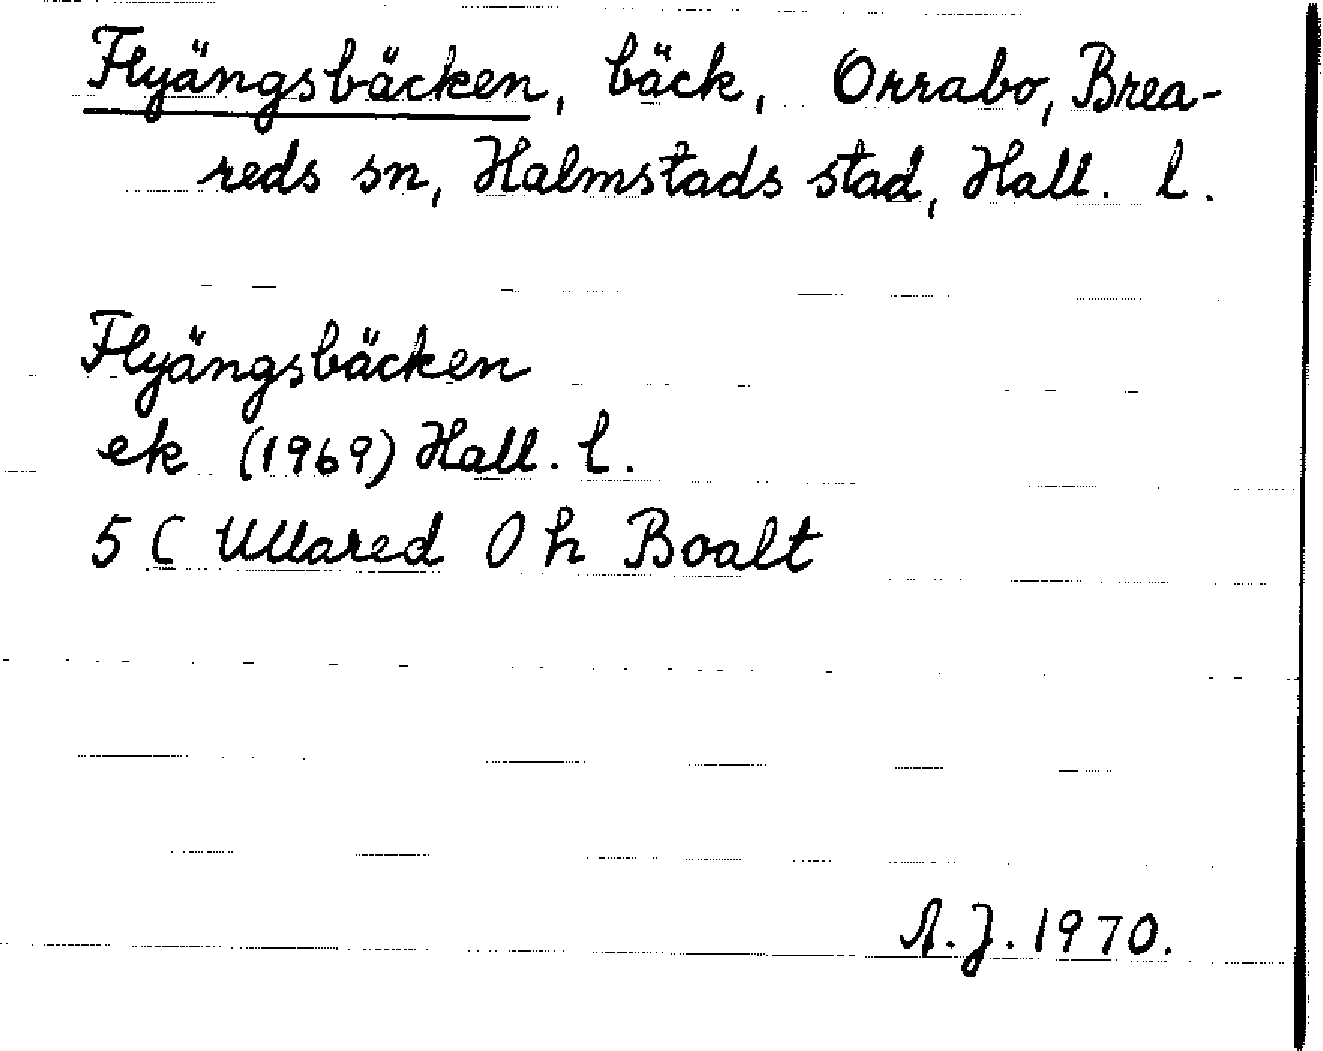 Flyängsbäcken, bäck, Orrabo, Brea-
reds sn, Halmstads stad, Hall. l.
Flyängsbäcken
ek (1969) Hall. l.
5 C Ullared O h Boalt
A.J. 1970.